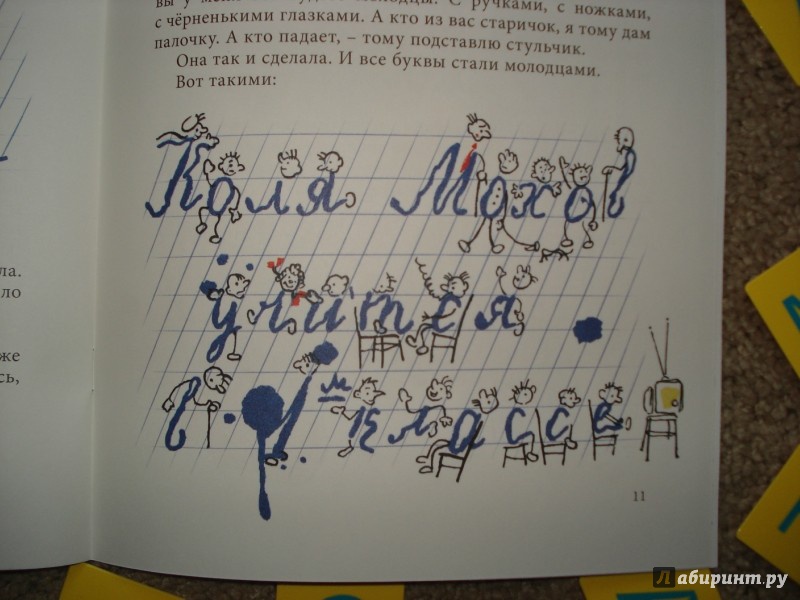 вы у меня
молодцы. С ручками, с ножками,
с чёрненькими глазками. А кто из вас старичок, я тому дам
палочку. А кто падает, – тому подставлю стульчик.
Она так и сделала. И все буквы стали молодцами.
Вот такими:
Коля Мохов
учится
в 1м классе
ла.
ло
же
сь,
11
Лабиринт.ру